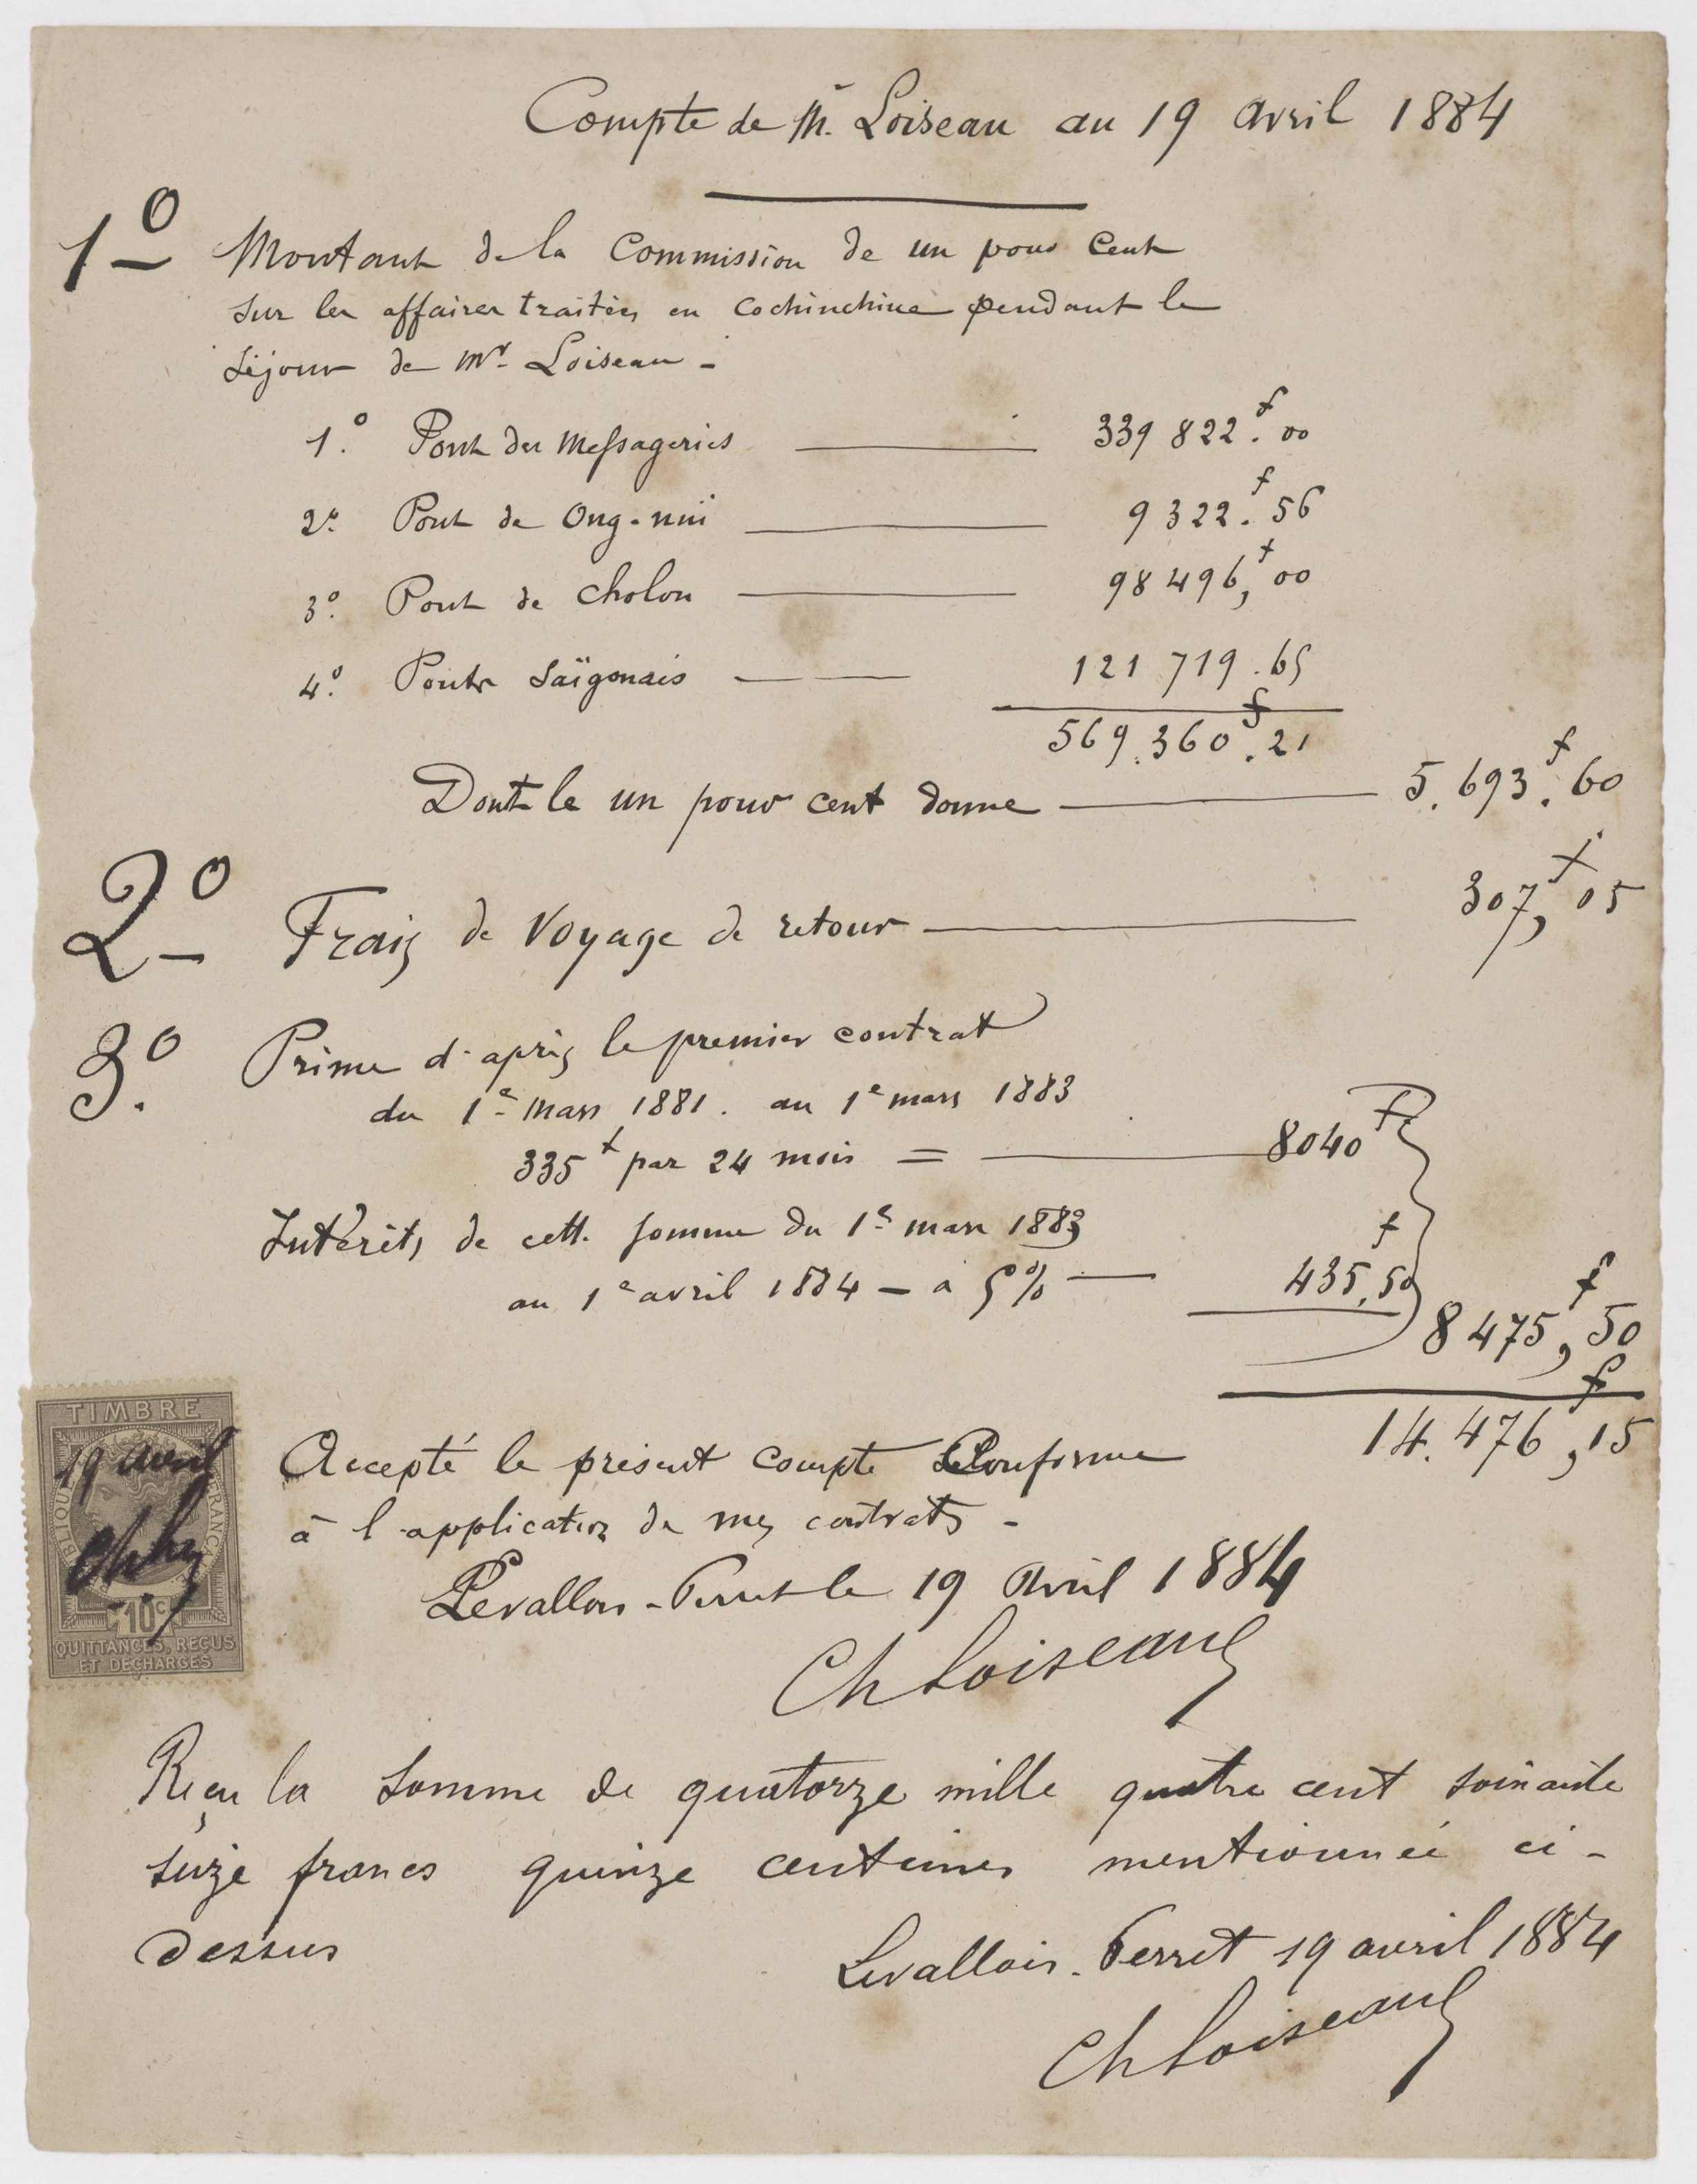 Compte de Mr. Loiseau au 19 avril 1884
1º Montant de la Commission de un pour Cent
sur les affaires traitées en Cochinchine pendant le
séjour de Mr. Loiseau -
1.º Pont des Messageries 339 822.f 00
2º. Pont de Ong-nui 9 322.f 56
3º. Pont de Cholon 98 496,f 00
4º. Ponts Saïgonais 121 719.65
569.360f.21
Dont le un pour cent donne 5.693f.60
2º Frais de Voyage de retour 307,f 05
3º. Prime d'après le premier contrat
du 1e mars 1881. au 1e mars 1883
335f par 24 mois = 8040F
Intérêts de cette somme du 1e mars 1883
au 1e avril 1884 - à 5% 435,f50
8 475,f 50
14.476,f15
Accepté le présent compte Conforme
à l'application de mes contrats -
Levallois-Perret le 19 Avril 1884
Ch Loiseau
TIMBRE
19 avril
RÉPUBLIQUE FRANÇAISE
10c
QUITTANCES, REÇUS
ET DÉCHARGES
Reçu la somme de quatorze mille quatre cent soixante
seize francs quinze centimes mentionnée ci-
dessus
Levallois-Perret 19 avril 1884
Ch Loiseau